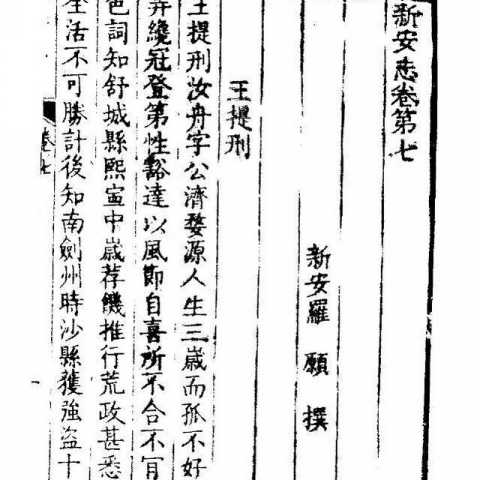 新安志卷第七
新安羅 願 撰
王提刑
王提刑汝舟字公濟婺源人生三歳而孤不好
弁纔冠登第性豁達以風節自喜所不合不肯
色詞知舒城縣熙寧中歳荐饑推行荒政甚悉
全活不可勝計後知南劍州時沙縣獲強盗十
卷七